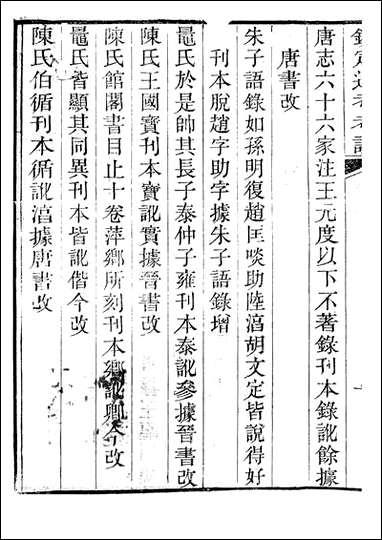 欽定通考考證
唐志六十六家注王元度以下不著錄刊本錄訛餘據
唐書改
朱子語錄如孫明復趙匡啖助陸淳胡文定皆說得好
刊本脫趙字助字據朱子語錄增
鼂氏於是帥其長子泰仲子雍刊本泰訛參據晉書改
陳氏王國寶刊本寶訛實據晉書改
陳氏館閣書目止十卷萍鄉所刻刊本鄉訛卿今改
鼂氏皆顯其同異刊本皆訛偕今改
陳氏伯循刊本循訛淳據唐書改